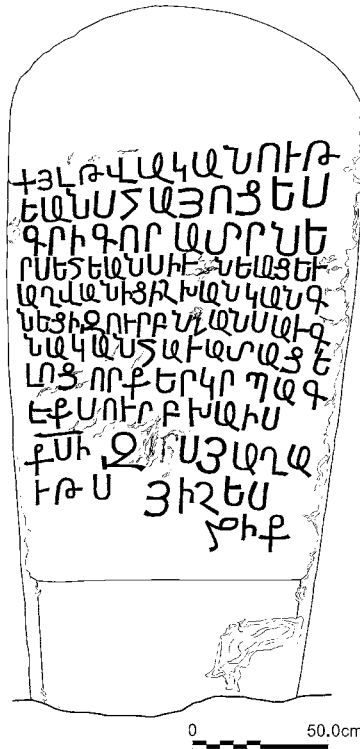 +ՅԼԹՎԱԿԱՆՈՒԹ
ԵԱՆՍՀԱՅՈՑԵՍ
ԳՐԻԳՈՐ ԱՏՐՆԵ
ՐՍԵՀԵԱՆՍԻՒ ՆԵԱՑԵՒ
ԱՂՎԱՆԻՑԻՇԽԱՆԿԱՆԳ
ՆԵՑԻԶՈՒՐԲՆՇԱՆՍԱՒԳ
ՆԱԿԱՆՀԱՒԱՏԱՑԵ
ԼՈՑ ՈՐՔ ԵՐԿՐ ՊԱԳ
ԷՔ ՍՈՒՐԲ ԽԱԻՍ
ՔՍԻ Զ ՐՍՅԱՂԱ
ՒԹՍ ՅԻՇԵՍ
ՋԻՔ
0 50.0cm